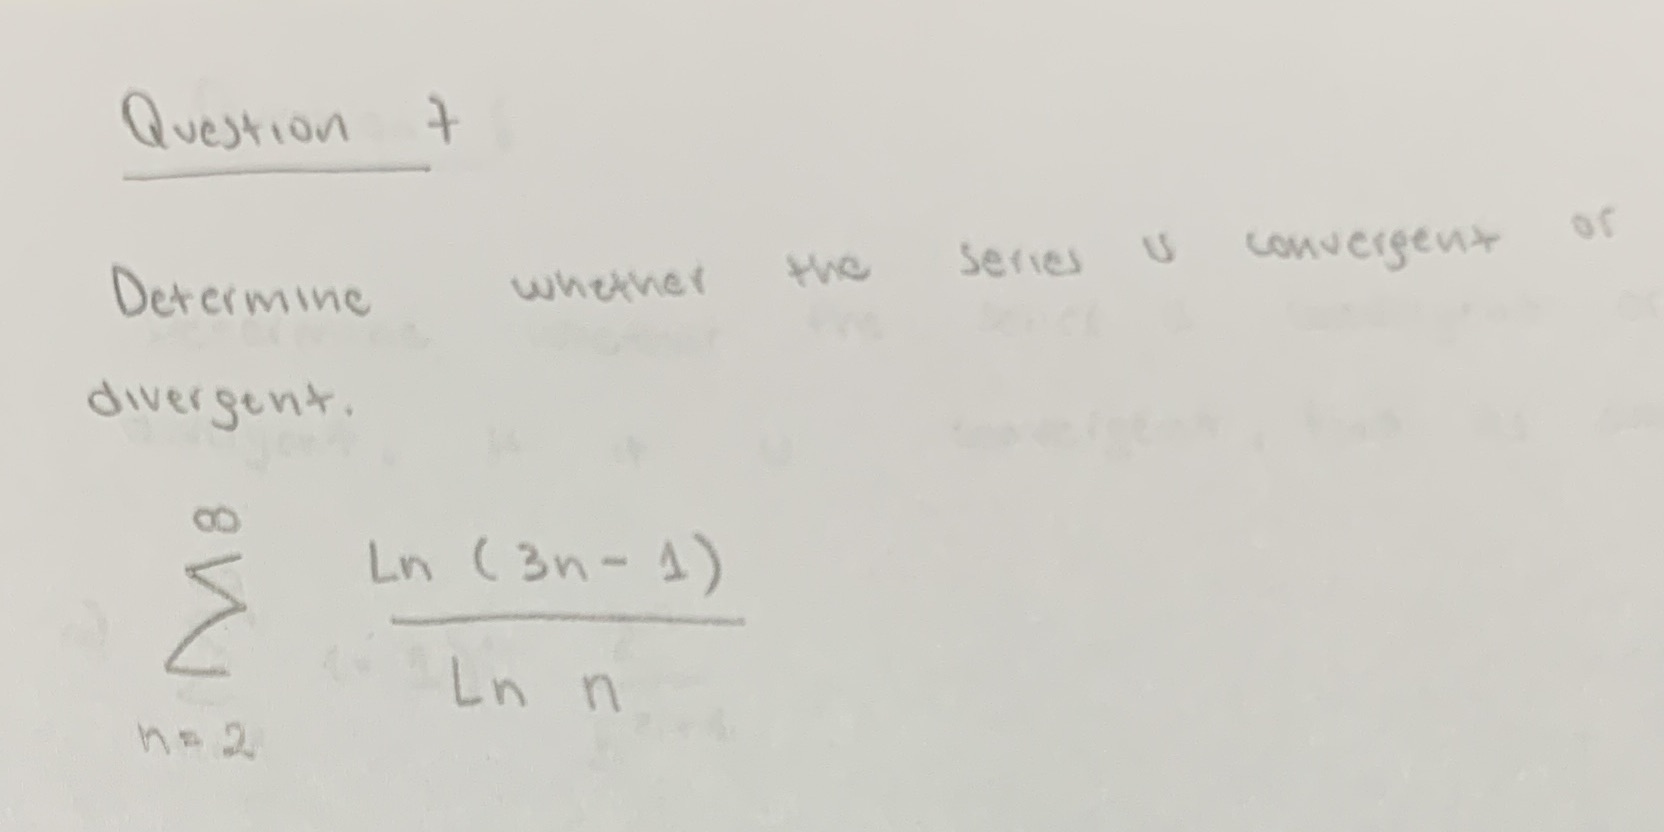 Question 7
Determine whether the series is convergent or
divergent.
∞
Σ Ln (3n - 1)
Ln n
n = 2